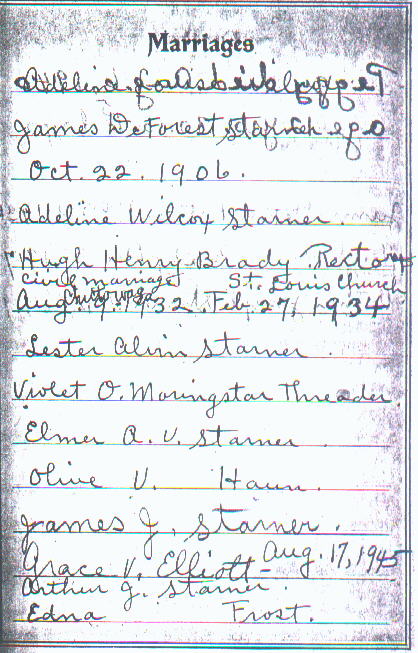 Marriages
James DeForest Starner
Oct. 22. 1906.
Adeline Wilcox Starner.
Hugh Henry Brady Rector
civil marriage St. Louis Church
Aug. 9. 1932. Feb. 27, 1934
Lester Alvin Starner.
Violet O. Morningstar Threader.
Elmer A. V. Starner.
Olive V. Haun.
James J. Starner.
Grace V. Elliott - Aug. 17, 1945
Arthur J. Starner.
Edna Frost.